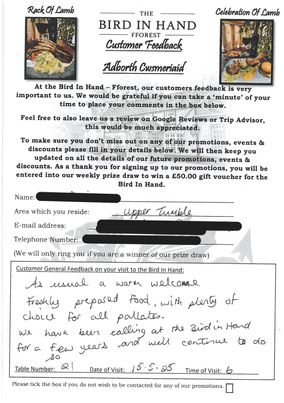 Rack Of Lamb
Celebration Of Lamb
THE
BIRD IN HAND
FFOREST
Customer Feedback
Adborth Cwsmeriaid
At the Bird In Hand – Fforest, our customers feedback is very
important to us. We would be grateful if you can take a ‘minute’ of your
time to place your comments in the box below.
Feel free to also leave us a review on Google Reviews or Trip Advisor,
this would be much appreciated.
To make sure you don't miss out on any of our promotions, events &
discounts please fill in your details below. We will then keep you
updated on all the details of our future promotions, events &
discounts. As a thank you for signing up to our promotions, you will be
entered into our weekly prize draw to win a £50.00 gift voucher for the
Bird In Hand.
Name:
Area which you reside: Upper Tumble
E-mail address:
Telephone Number:
(We will only ring you if you are a winner of our prize draw)
Customer General Feedback on your visit to the Bird in Hand:
As usual a warm welcome
Freshly prepared food, with plenty of
choice for all pallates.
We have been calling at the Bird in Hand
for a few years and will continue to do
so
Table Number: 21 Date of Visit: 15-5-25 Time of Visit: 6
Please tick the box if you do not wish to be contacted for any of our promotions.